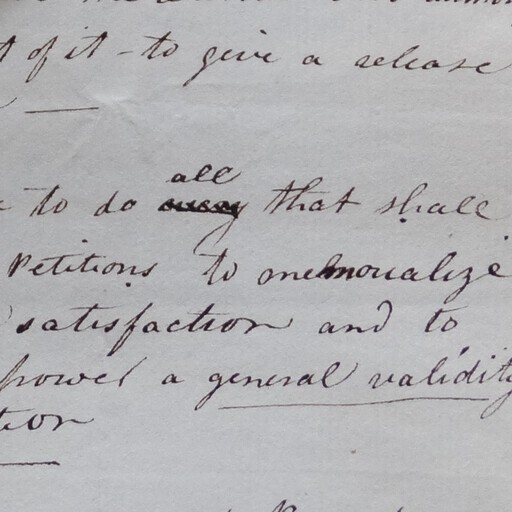 of it - to give a release
all
to do that shall
Petitions to memorialize
satisfaction and to
power a general validity
tion